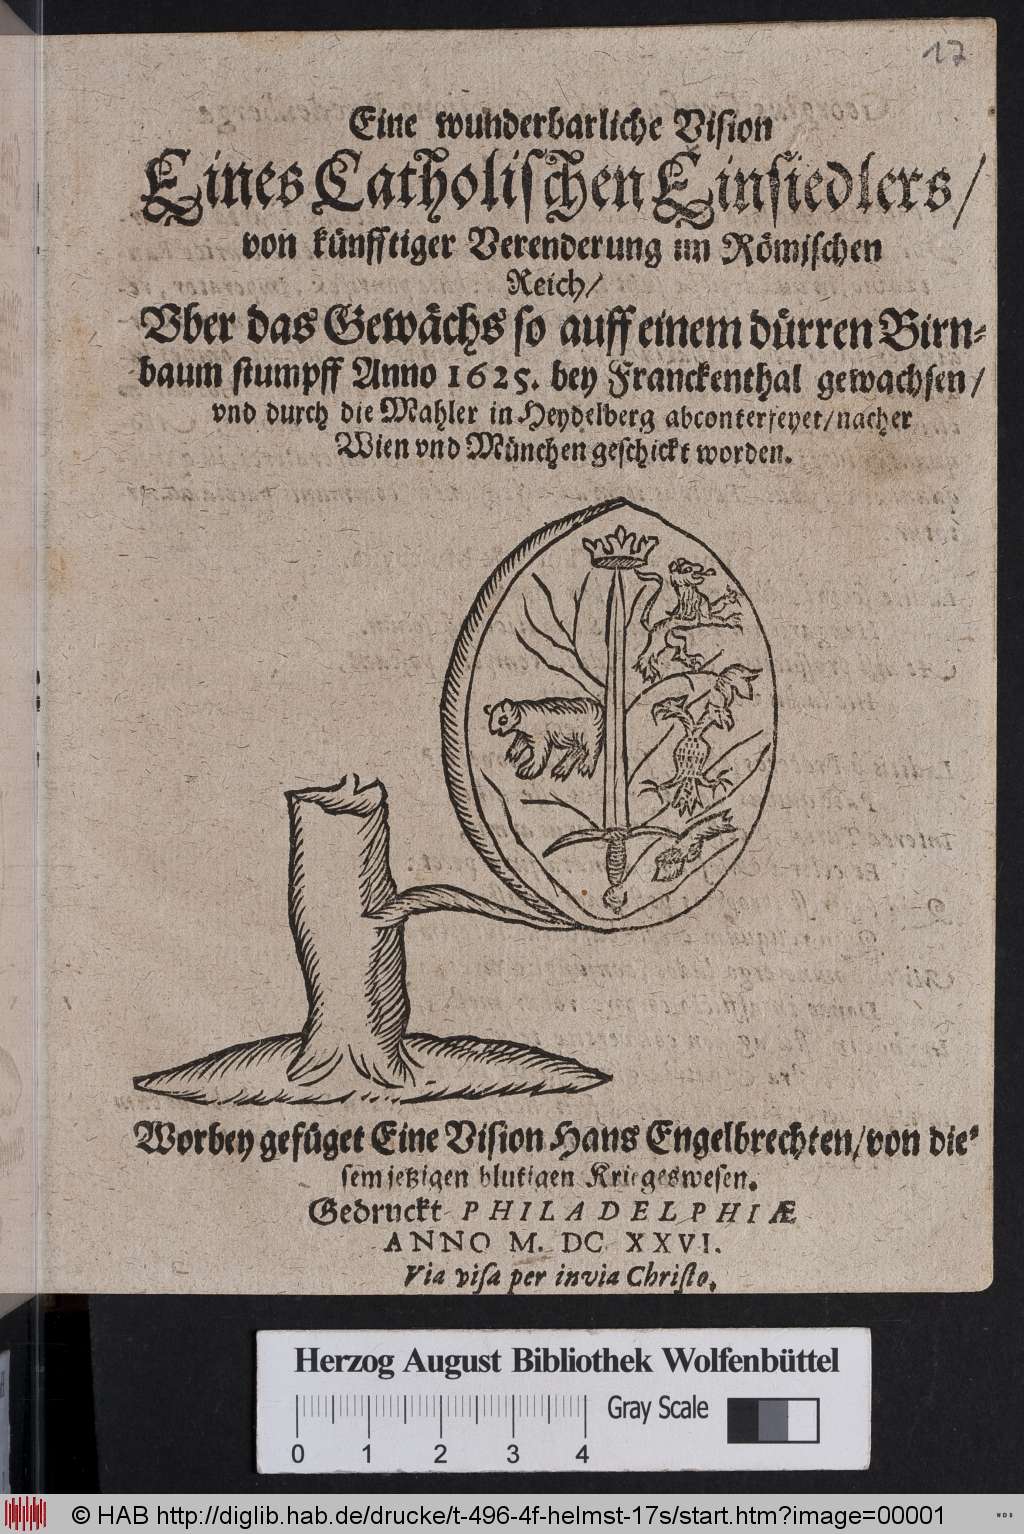 17
Eine wunderbarliche Vision
Eines Catholischen Einsiedlers/
von künfftiger Verenderung im Römischen
Reich/
Vber das Gewächs so auff einem dürren Birn-
baum stumpff Anno 1625. bey Franckenthal gewachsen/
vnd durch die Mahler in Heydelberg abconterfeyet/nacher
Wien vnd München geschickt worden.
Worbey gefüget Eine Vision Hans Engelbrechten/von die-
sem jetzigen blutigen Kriegeswesen.
Gedruckt PHILADELPHIÆ
ANNO M. DC XXVI.
Via visa per invia Christo.
Herzog August Bibliothek Wolfenbüttel
Gray Scale
0 1 2 3 4
© HAB http://diglib.hab.de/drucke/t-496-4f-helmst-17s/start.htm?image=00001